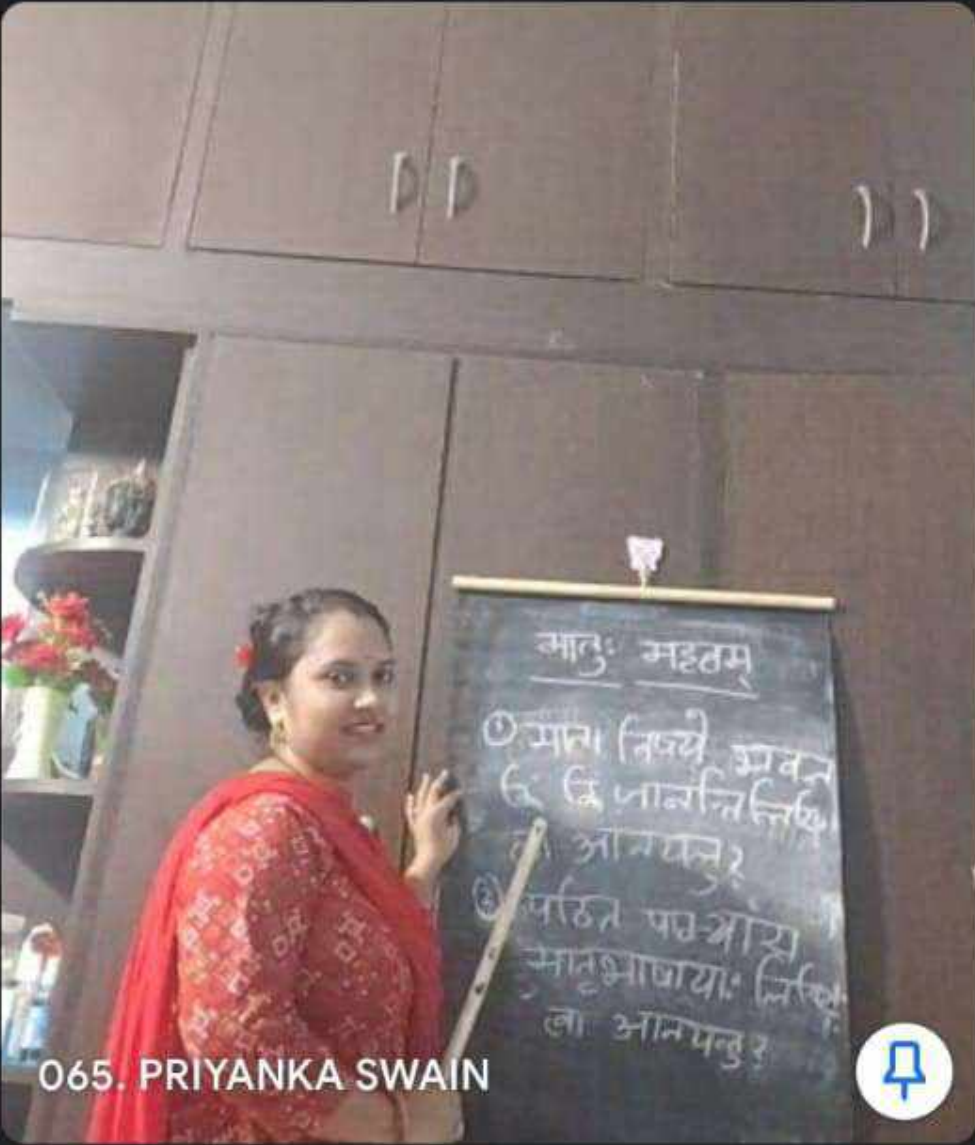 मातुः महत्वम्
① माता विषये भवन्त
किं किं जानन्ति लिखि
त्वा आनयन्तु?
② पठित पद्यांश
मातृभाषायाः लिखि
त्वा आनयन्तु?
065. PRIYANKA SWAIN